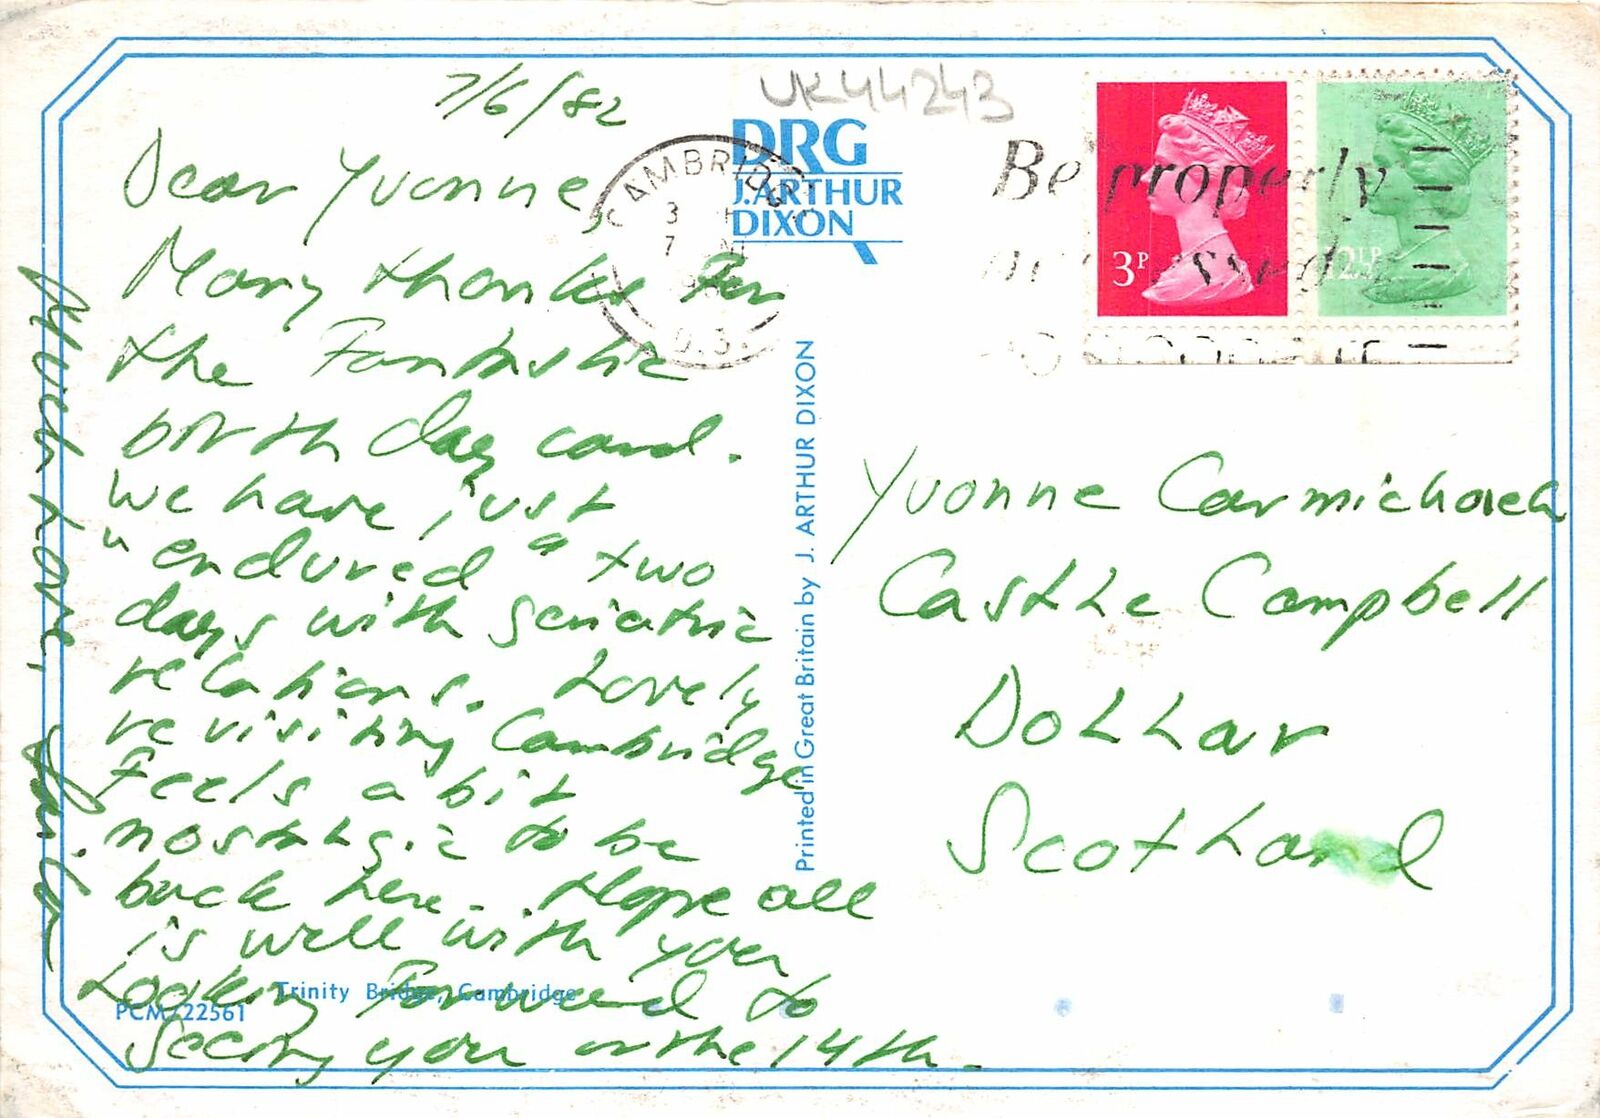 7/6/82
Dear Yvonne,
Many thanks for
the Fantastic
birthday card.
We have just
"endured" two
days with geriatric
relations. Lovely
revisiting Cambridge
Feels a bit
nostalgic to be
back here. Hope all
is well with you
Looking Forward to
Seeing you on the 14th.
Much love,
Trinity Bridge, Cambridge
PCM/22561
UK44243
DRG
J.ARTHUR
DIXON
CAMBRIDGE
Be properly
3P
12½P
Printed in Great Britain by J. ARTHUR DIXON
Yvonne Carmichael
Castle Campbell
Dollar
Scotland